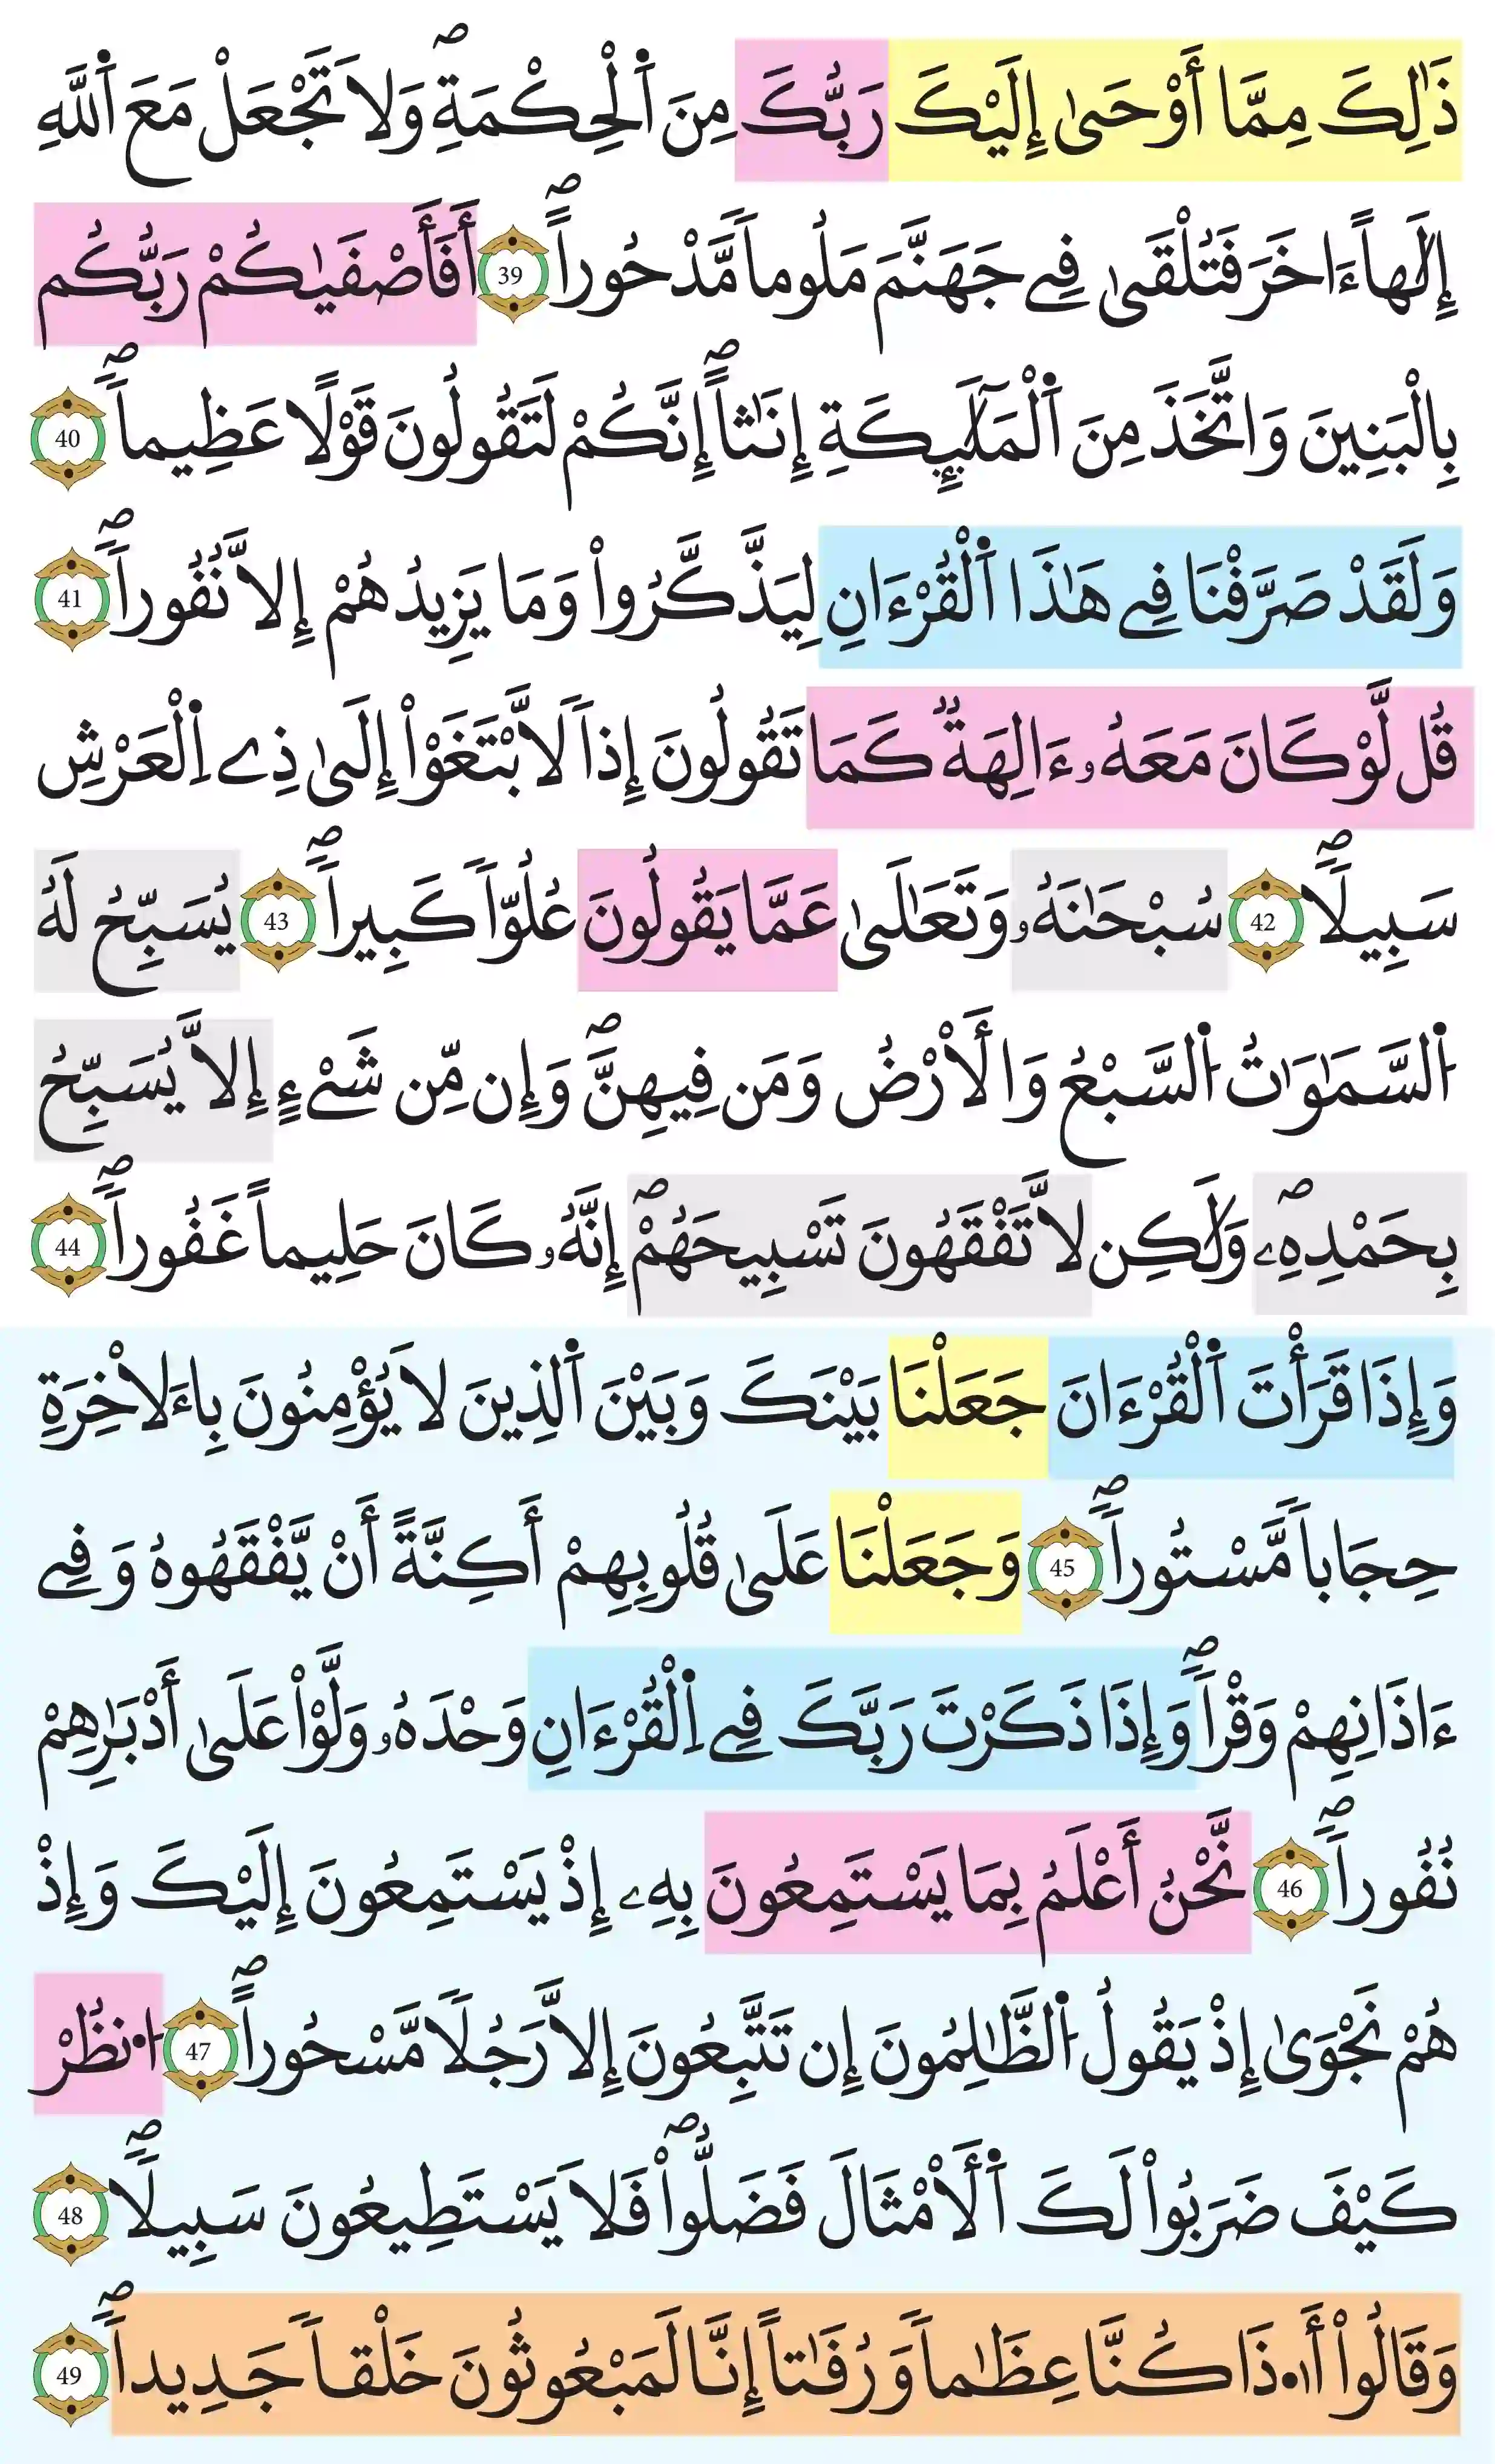 ذَٰلِكَ مِمَّا أَوْحَىٰ إِلَيْكَ رَبُّكَ مِنَ اَ۬لْحِكْمَةِۖ وَلَا تَجْعَلْ مَعَ اَ۬للَّهِ
إِلَٰهاً ءَاخَرَ فَتُلْقَىٰ فِے جَهَنَّمَ مَلُوماٗ مَّدْحُوراًۖ 39 أَفَأَصْفَيٰكُمْ رَبُّكُم
بِالْبَنِينَ وَاتَّخَذَ مِنَ اَ۬لْمَلَٰٓئِكَةِ إِنَٰثاًۖ إِنَّكُمْ لَتَقُولُونَ قَوْلًا عَظِيماٗۖ 40
وَلَقَدْ صَرَّفْنَا فِے هَٰذَا اَ۬لْقُرْءَانِ لِيَذَّكَّرُواْ وَمَا يَزِيدُهُمْ إِلَّا نُفُوراٗۖ 41
قُل لَّوْ كَانَ مَعَهُۥ ءَالِهَةٞ كَمَا تَقُولُونَ إِذاٗ لَّابْتَغَوْاْ إِلَىٰ ذِے اِ۬لْعَرْشِ
سَبِيلًاۖ 42 سُبْحَٰنَهُۥ وَتَعَٰلَىٰ عَمَّا يَقُولُونَ عُلُوّاٗ كَبِيراٗۖ 43 يُسَبِّحُ لَهُ
اُ۬لسَّمَٰوَٰتُ اُ۬لسَّبْعُ وَالْأَرْضُ وَمَن فِيهِنَّۖ وَإِن مِّن شَےْءٍ إِلَّا يُسَبِّحُ
بِحَمْدِهِۦۖ وَلَٰكِن لَّا تَفْقَهُونَ تَسْبِيحَهُمْۖ إِنَّهُۥ كَانَ حَلِيماً غَفُوراٗۖ 44
وَإِذَا قَرَأْتَ اَ۬لْقُرْءَانَ جَعَلْنَا بَيْنَكَ وَبَيْنَ اَ۬لذِينَ لَا يُؤْمِنُونَ بِاءَلَاخِرَةِ
حِجَاباٗ مَّسْتُوراٗۖ 45 وَجَعَلْنَا عَلَىٰ قُلُوبِهِمْ أَكِنَّةً أَنْ يَّفْقَهُوهُ وَفِے
ءَاذَانِهِمْ وَقْراٗۖ وَإِذَا ذَكَرْتَ رَبَّكَ فِے اِ۬لْقُرْءَانِ وَحْدَهُۥ وَلَّوْاْ عَلَىٰ أَدْبَٰرِهِمْ
نُفُوراٗۖ 46 نَّحْنُ أَعْلَمُ بِمَا يَسْتَمِعُونَ بِهِۦ إِذْ يَسْتَمِعُونَ إِلَيْكَ وَإِذْ
هُمْ نَجْوَىٰ إِذْ يَقُولُ اُ۬لظَّٰلِمُونَ إِن تَتَّبِعُونَ إِلَّا رَجُلاٗ مَّسْحُوراًۖ 47 اُ۟نظُرْ
كَيْفَ ضَرَبُواْ لَكَ اَ۬لْأَمْثَالَ فَضَلُّواْۖ فَلَا يَسْتَطِيعُونَ سَبِيلاٗۖ 48
وَقَالُواْ أَ۟ذَا كُنَّا عِظَٰماٗ وَرُفَٰتاً إِنَّا لَمَبْعُوثُونَ خَلْقاٗ جَدِيداٗۖ 49